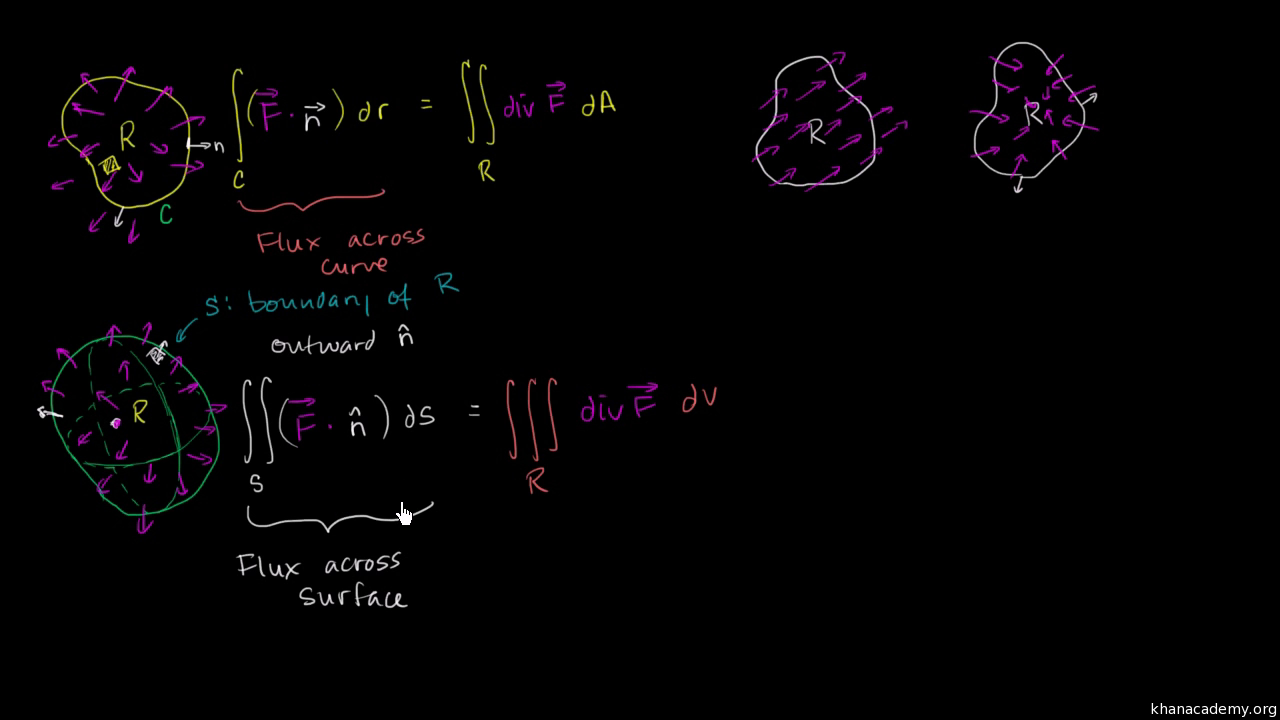 R
n
C
∫ (F⃗ · n⃗) dr = ∬ div F⃗ dA
C
R
Flux across
curve
R
R
S: boundary of R
outward n̂
R
∬ (F⃗ · n̂) dS = ∭ div F⃗ dV
S
R
Flux across
surface
khanacademy.org